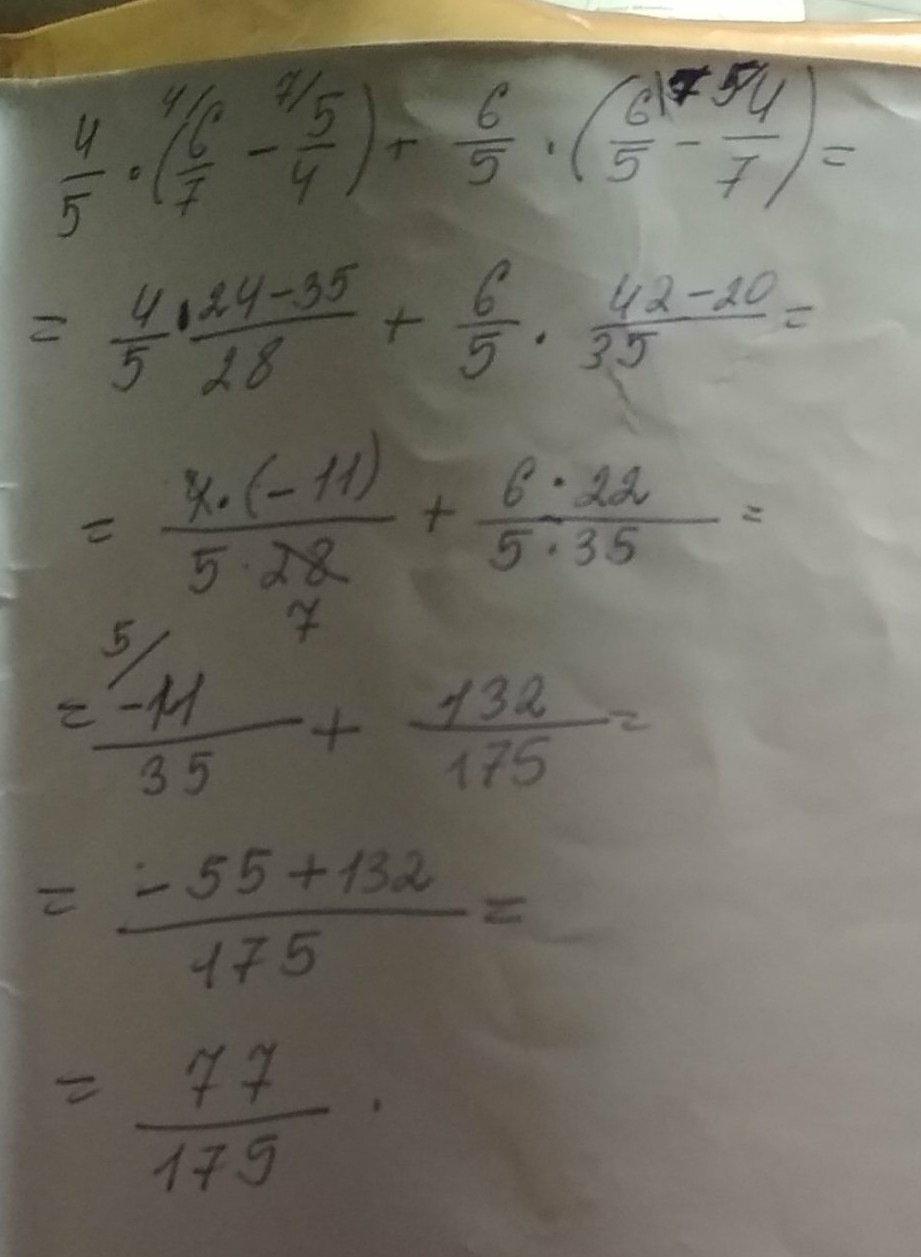 4/5 · (4/ 6/7 - 7/ 5/4) + 6/5 · (6/5 \7 - 5/ 4/7) =
= 4/5 · 24-35/28 + 6/5 · 42-20/35 =
= 4·(-11)/5·28 7 + 6·22/5·35 =
= 5/ -11/35 + 132/175 =
= -55+132/175 =
= 77/175 .